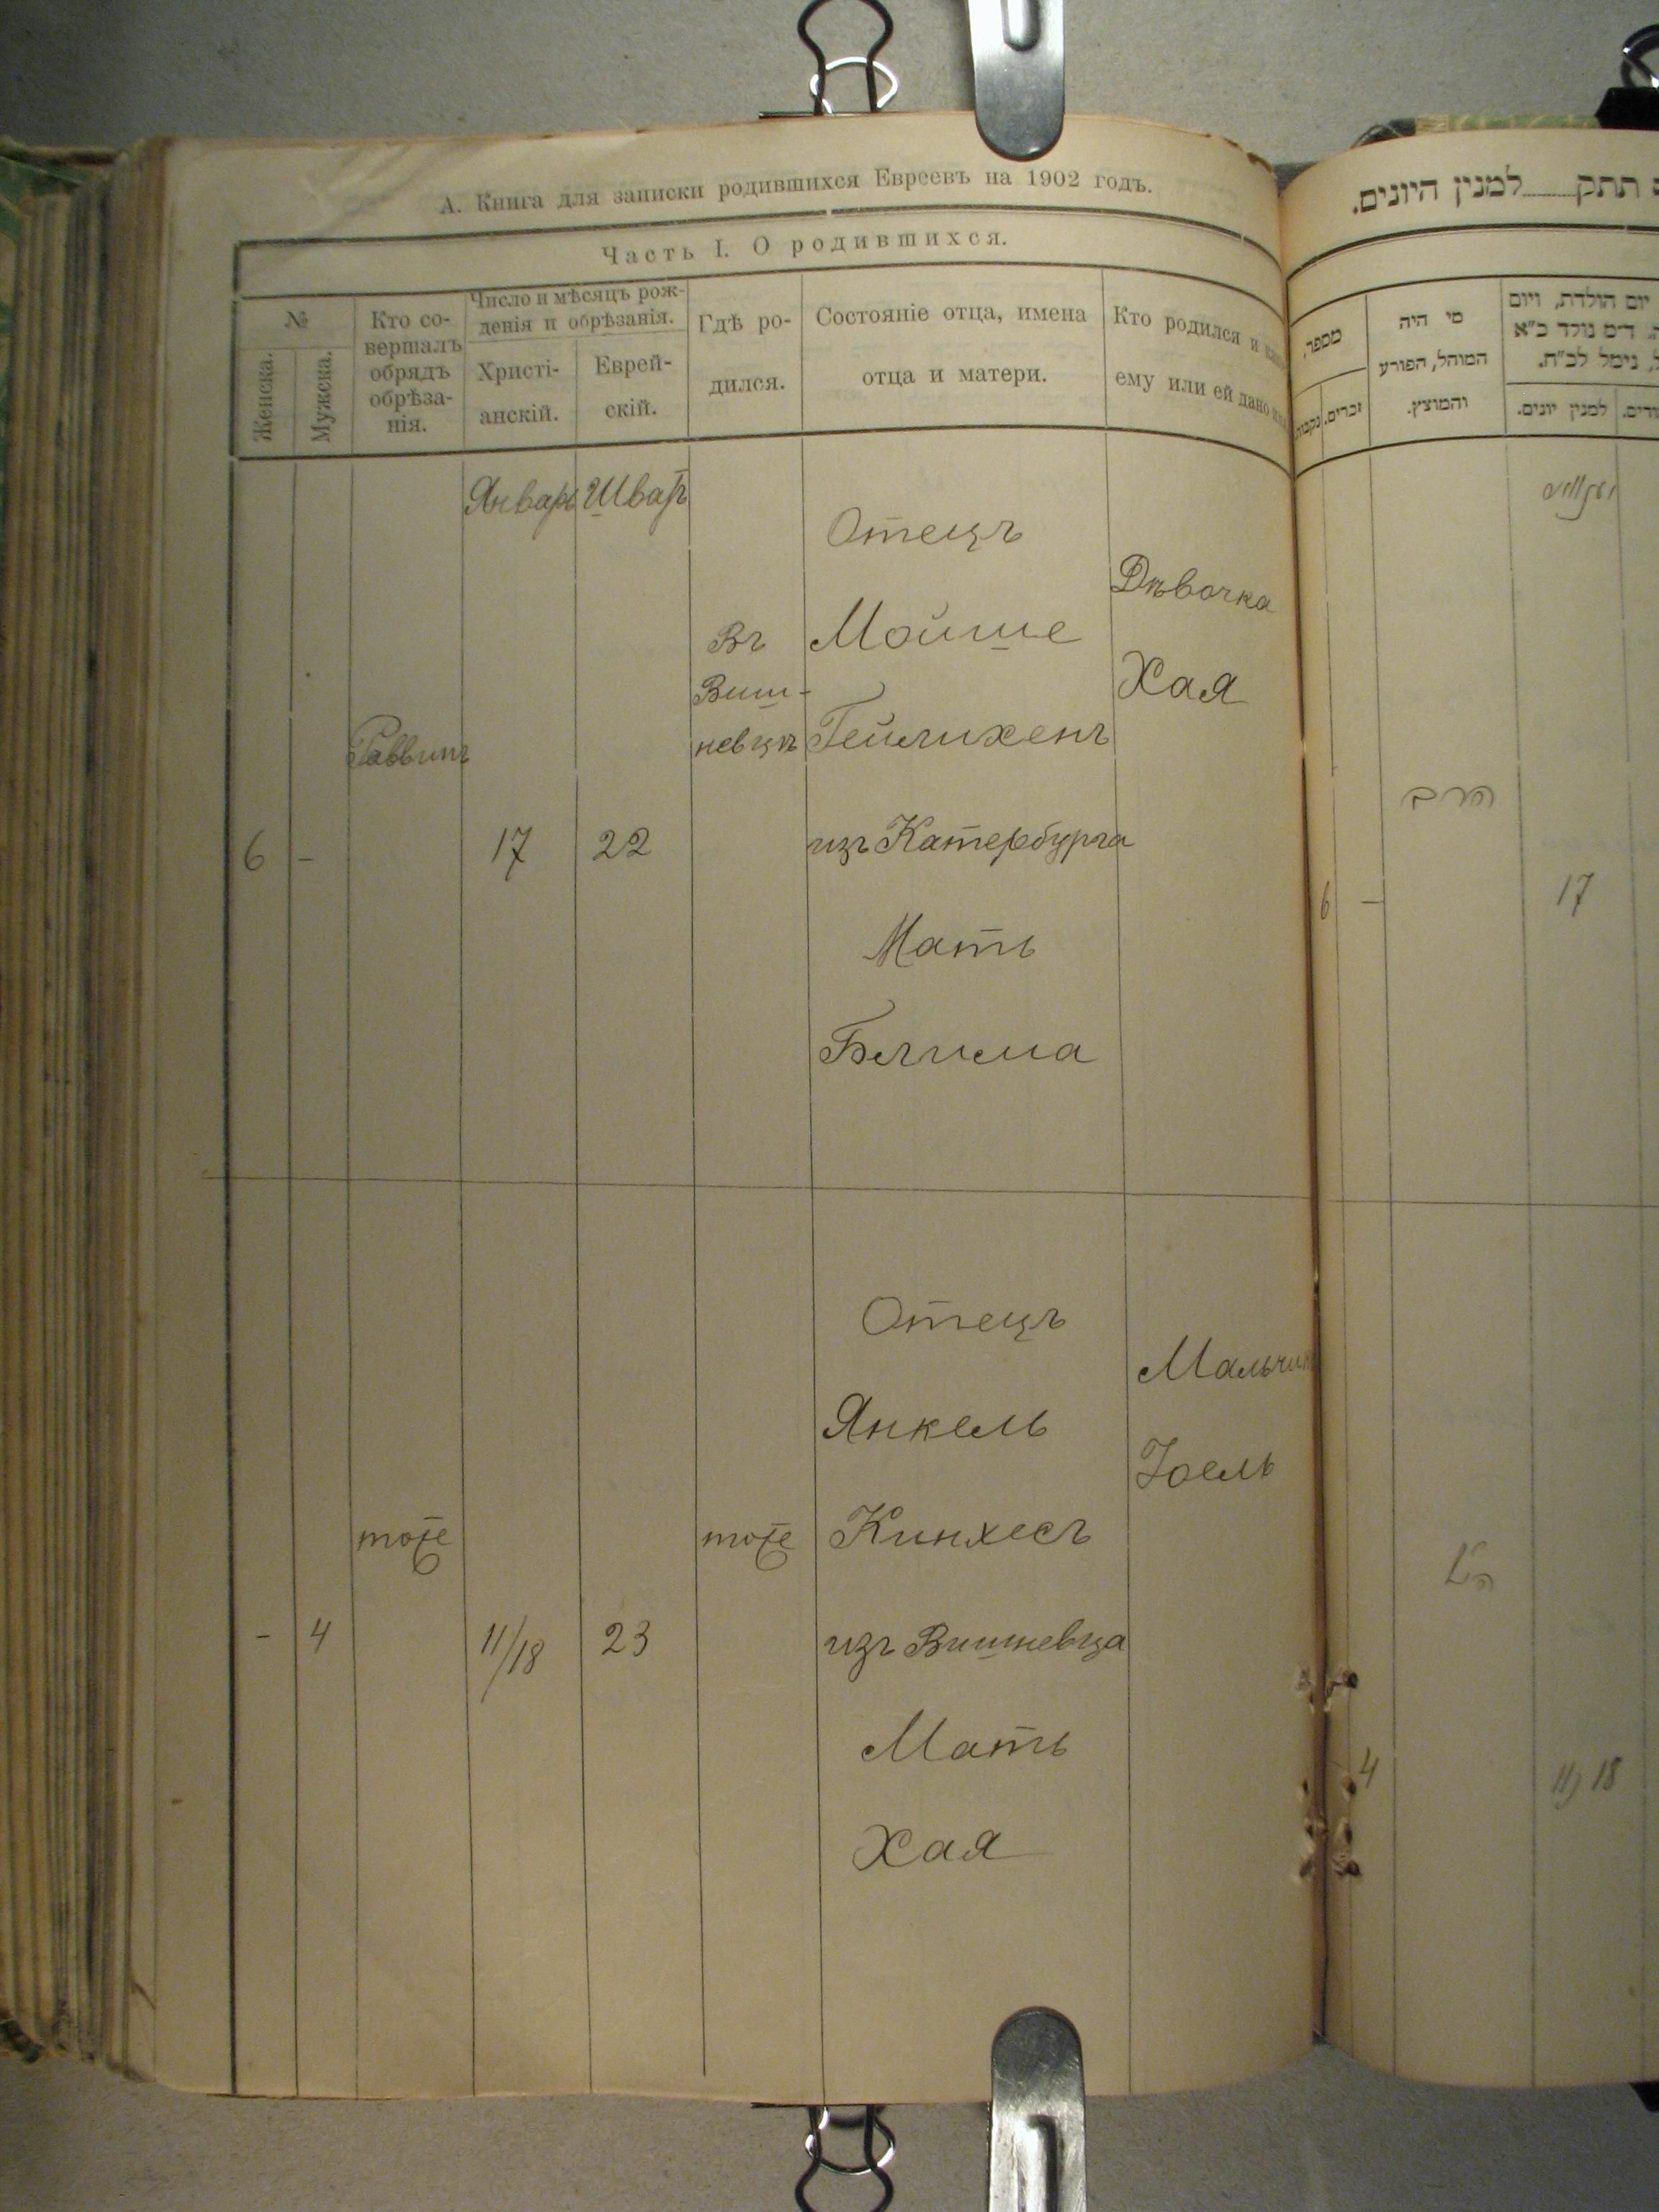 А. Книга для записки родившихся Евреевъ на 1902 годъ.
Часть I. О родившихся.
№
Женска.
Мужска.
Кто со-
вершалъ
обрядъ
обрѣза-
нія.
Число и мѣсяцъ рож-
денія и обрѣзанія.
Христі-
анскій.
Еврей-
скій.
Гдѣ ро-
дился.
Состояніе отца, имена
отца и матери.
Кто родился и
ему или ей дано
Январь
Шватъ
6
-
Раввинъ
17
22
Въ
Виш-
невцѣ
Отецъ
Мойше
Гейлихенъ
изъ Катербурга
Мать
Блима
Дѣвочка
Хая
-
4
тоже
11/18
23
тоже
Отецъ
Янкель
Кинхесъ
изъ Вишневца
Мать
Хая
Мальчик
Іоель
תתק למנין היונים.
מספר,
נקבות.
זכרים.
מי היה
המוהל, הפורע
והמוצץ.
יום הולדת, ויום
ד״מ נולד כ״א
נימל לכ״ח.
למנין יונים.
6
-
הרב
17
4
הנ״ל
11/18